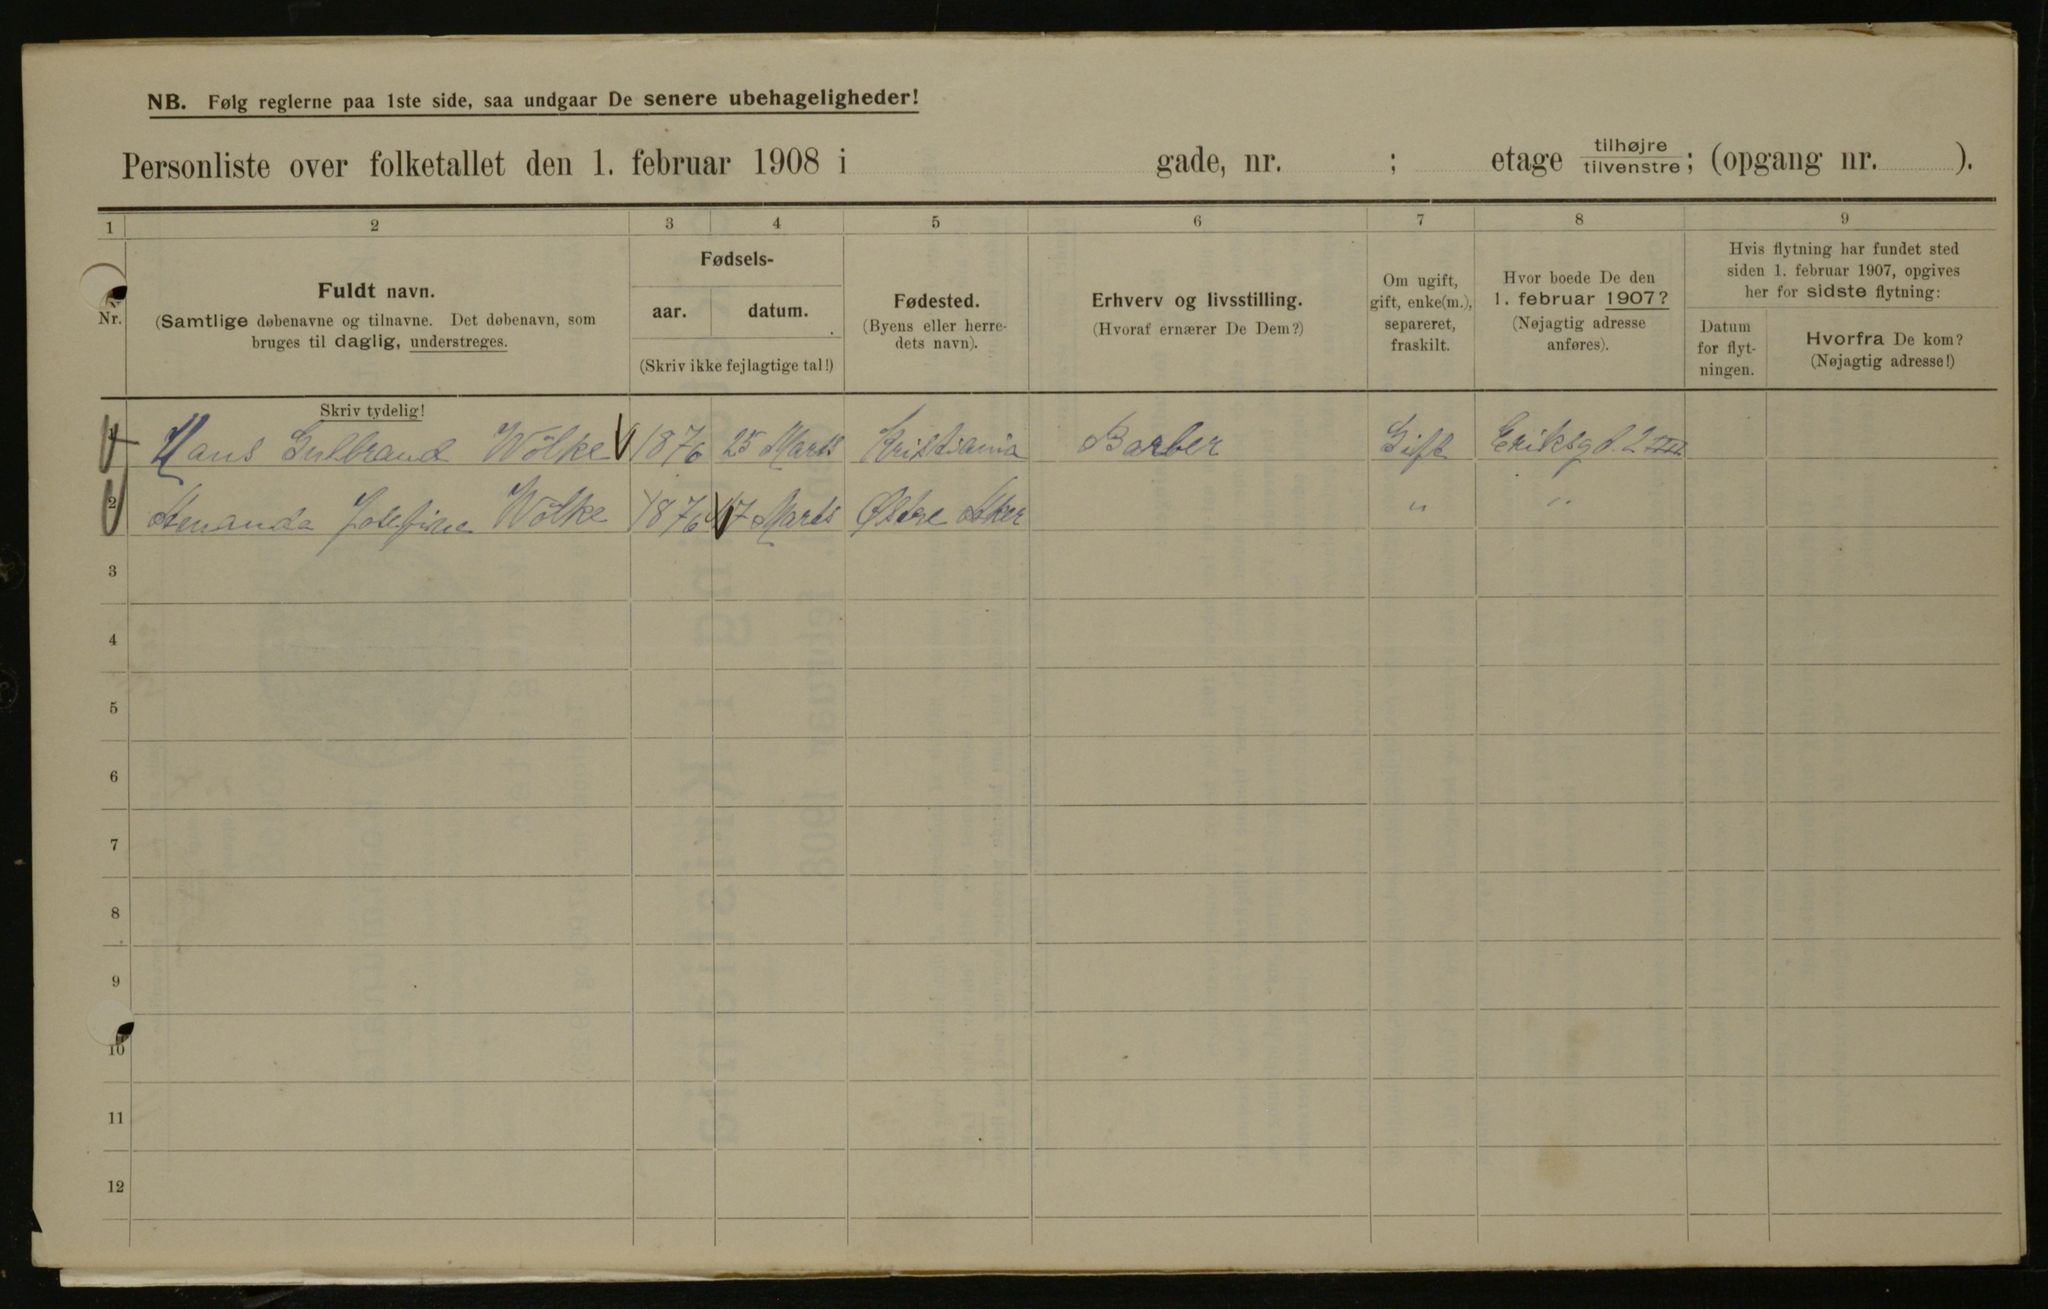 NB. Følg reglerne paa 1ste side, saa undgaar De senere ubehageligheder!
Personliste over folketallet den 1. februar 1908 i gade, nr. ; etage tilhøjre/tilvenstre; (opgang nr. ).
1 2 3 4 5 6 7 8 9
Nr.
Fuldt navn.
(Samtlige døbenavne og tilnavne. Det døbenavn, som
bruges til daglig, understreges.
Skriv tydelig!
Fødsels-
aar. datum.
(Skriv ikke fejlagtige tal!)
Fødested.
(Byens eller herre-
dets navn).
Erhverv og livsstilling.
(Hvoraf ernærer De Dem?)
Om ugift,
gift, enke(m.),
separeret,
fraskilt.
Hvor boede De den
1. februar 1907?
(Nøjagtig adresse
anføres).
Hvis flytning har fundet sted
siden 1. februar 1907, opgives
her for sidste flytning:
Datum
for flyt-
ningen.
Hvorfra De kom?
(Nøjagtig adresse!)
1 Hans Gulbrand Wölke 1876 25 Marts Kristiania Barber Gift Eriksgd. 2
2 Amanda Josefine Wölke 1876 17 Marts Østre Aker " "
3
4
5
6
7
8
9
10
11
12